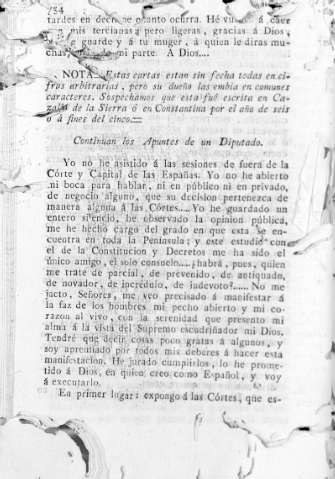 754
tardes en decirme quanto ocurra. Hé vuelto á caer
mis tercianas pero ligeras, gracias á Dios,
te guarde y á tu muger, á quien le diras mu-
chas de mi parte. A Dios....
NOTA. Estas cartas estan sin fecha todas en ci-
fras arbitrarias, pero su dueño las embia en comunes
caracteres. Sospechamos que esta fué escrita en Ca-
de la Sierra ó en Constantina por el año de seis
ó á fines del cinco.
Continuan los Apuntes de un Diputado.
Yo no he asistido á las sesiones de fuera de la
Córte y Capital de las Españas. Yo no he abierto
ni boca para hablar, ni en público ni en privado,
de negocio alguno, que su decision pertenezca de
manera alguna á las Córtes.... Yo he guardado un
entero silencio, he observado la opinion pública,
me he hecho cargo del grado en que esta se en-
cuentra en toda la Península; y este estudio con
el de la Constitucion y Decretos me ha sido el
único amigo, el solo consuelo....¿habrá, pues, quien
me trate de parcial, de prevenido, de antiquado
de novador, de incrédulo, de indevoto?..... No me
jacto, Señores, me veo precisado á manifestar á
la faz de los hombres mi pecho abierto y mi co-
razon al vivo, con la serenidad que presento mi
alma á la vista del Supremo escudriñador mi Dios.
Tendré que decir cosas poco gratas á algunos, y
soy apremiado por todos mis deberes á hacer esta
manifestacion. He jurado cumplirlos, lo he prome-
tido á Dios, en quien creo como Español, y voy
á executarlo.
En primer lugar: expongo á las Córtes, que es-